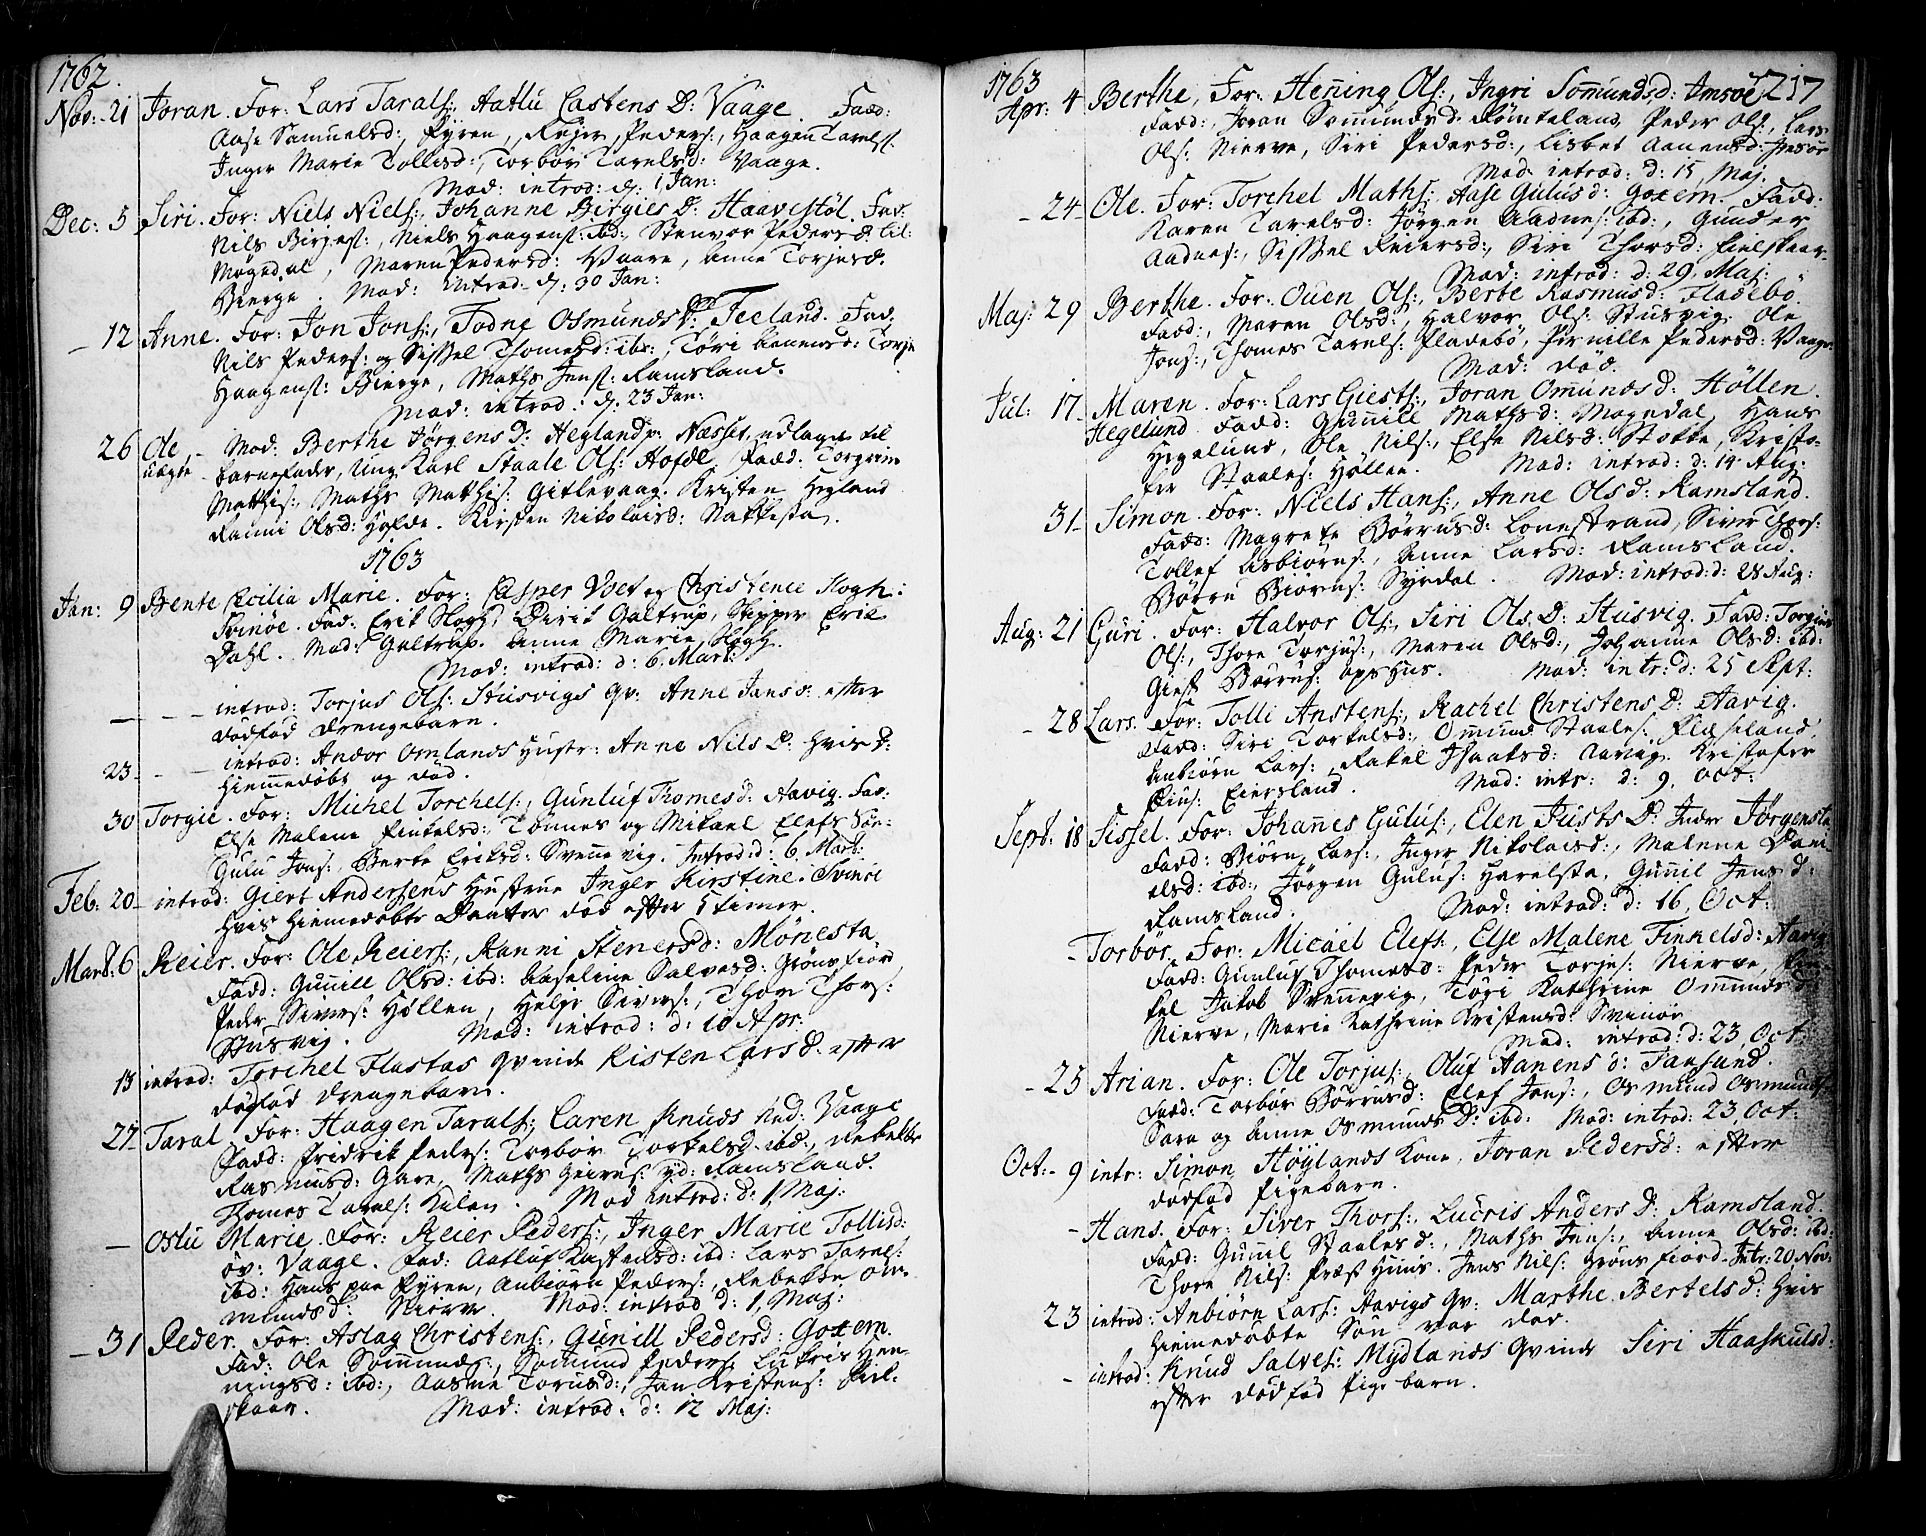 1762.
Nov: 21 Joran. For: Lars Tarals:, Aatlu Castens D: Vaage. Fadd:
Aase Samuelsd:, Pyren, Reier Peders:, Haagen Tarels:
Inger Marie Tollisd:, Torbor Tarelsd: Vaage.
Mod: introd: d: 1 Jan:
Dec: 5 Siri. For: Niels Niels:, Johanne Birgies D: Haavestøl. Fad:
Nils Birjes:, Niels Haagens: ibd:, Stenvor Pedersd: til:
Møgedal, Maren Pedersd: Vaare, Anne Torjusd:
Bierge. Mod: introd: d: 30 Jan:
- 12 Anne. For: Jon Jons:, Todne Osmunds D: Teeland. Fad.
Nils Peders: og Sissel Thomesd: ibd:, Tøri Aanensd: Torje
Haagens: Bierge, Maths Jens: Ramsland.
Mod: introd: d: 23 Jan:
26 Ole, - Mod: Berthe Jørgens D: Hegland p: Næsset, udlagde til
uægte - barnefader, Ung Karl Staale Ols: Hofde. Fadd: Torgrim
Mathis:, Maths Mathis: Gitlevaag. Kristen Hegland
Ranni Olsd: Holde. Kirsten Nikolaisd: Nakkesta.
1763
Jan: 9 Bente Cecilia Marie. For: Casper Voet og Christence Hogh:
Svinøe. Fad: Erik Hogh, Dirik Galtrup, Skipper Eric
Dahl. Mad: Galtrup. Anne Marie Hogh.
Mod: introd: d: 6. Mart:
- - - introd: Torjus Ols: Stusvigs Qv: Anne Jansd: efter
dødfød drengebarn.
23 - - - introd: Andor Omlands Hustr: Anne Nils D: hvis D:
hiemmedøbt og død.
30 Torgie. For: Michel Torchels:, Gunluf Thomesd: Aavig. Fad:
Else Malene Finkelsd:, Tønnes og Mikael Elefs Søn-
Gulu Jons:, Berte Eriksd: Svennevig. Introd: d: 6. Mart:
Feb: 20 - introd: Giert Andersens Hustrue Inger Kirstine. Svinöe
hvis hiemedøbte Daatter død efter 5 timer.
Mart: 6 Reier. For: Ole Reiers:, Ranni Stenersd: Mönesta.
Fadd: Gunill Olsd: ibd: Aaseline Salvesd: Grönsfiord,
Peder Sivers: Höllen, Helge Sivers:, Thore Thors:
Stusvig. Mod: introd: d: 10 Apr:
13 introd: Torchel Flastas Qvinde Kisten Lars D: efter
dødfød drengebarn.
27 - Taral. For: Haagen Tarals:, Caren Knuds ned: Vaage
Fadd: Fridrik Peders: Torbor Torkelsd: ibd:, Rebekke
Rasmusd: Gare, Maths Geirus: yd: Ramsland.
Thomes Tarels: Kilen. Mod introd: d: 1, Maj:
- Oslu Marie. For: Reier Peders:, Inger Marie Tollisd:
öv: Vaage. Fad: Aatluf Kastensd: ibd: Lars Tarels:
ibd: Hans paa Pyren, Anbiørn Peders:, Rebekke Om-
mundsd: Nierve. Mod: introd d: 1, Maj:
- 31 Peder. For: Aslag Christens:, Gunill Pedersd: Goxem.
Fad: Ole Sommunds:, Sommund Peders: Lukris Hen-
ningsd: ibd:, Aasne Torusd:, Jan Kristens: Fiel-
skaar. Mod: introd: d: 12 Maj:
1763 217
Apr: 4 Berthe, For: Hening Ols:, Ingri Somundsd: Imsöe
Fadd:, Joran Sommundsd: Römteland, Peder Ols:, Lars
Ols: Nierve, Siri Pedersd:, Lisbet Aanensd: Imsöe
Mod: introd: d: 15, Maj.
- 24 - Ole. For: Torchel Maths:, Aase Gulusd: Goxem. Fadd:
Karen Tarelsd: Jørgen Aadnes: ibd:, Gunder
Aadnes:, Sissel Reiersd:, Siri Thorsd: Fielskaar.
Mod: introd: d: 29, Maj:
Maj: 29 Berthe. For: Ouen Ols:, Berte Rasmusd: Fladebö.
Fadd:, Maren Olsd:, Halvor Ols: Stusvig. Ole
Jons:, Thomes Tarels: Fladebö, Pernille Pedersd: Vaage
Mod: død.
Jul: 17 - Maren. For: Lars Giests:, Joran Omundsd: Höllen.
Hegelund. Fadd: Gunill Mathsd: Møgedal, Hans
Hegelund, Ole Nils:, Else Nilsd: Stokke, Kristo-
fer Staales: Höllen. Mod: introd: d: 14 Aug:
31 - Simon. For: Niels Hans:, Anne Olsd: Ramsland.
Fadd: Magrete Börrusd: Lonestrand, Siver Thors:
Tollef Asbiørns:, Anne Larsd: Ramsland.
Børru Biørns: Syrdal. Mod: introd: d: 28 Aug:
Aug: 21 Guri. For: Halvor Ols:, Siri Ols D: Stusvig. Fadd: Torgius
Ols:, Thore Torjus:, Maren Olsd:, Johanne Olsd: ibd:
Giest Börrus: opshus. Mod: intr: d: 25 Sept:
- 28 Lars. For: Tolli Anstens:, Rachel Christens D: Aavig.
Fadd: Siri Torkelsd:, Ommund Staales: Fladseland,
Anbiørn Lars:, Rakel Isaaksd: Aavig. Kristofer
Eius: Eiersland. Mod: intr: d: 9. Oct:
Sept: 18 Sissel. For: Johanes Gulus:, Elen Justs D: Indre Jørgensta
Fadd: Biørn Lars:, Inger Nikolaisd:, Malene Dani-
elsd: ibd:, Jörgen Gulus: Harelsta, Gunnil Jens d:
Ramsland. Mod: introd: d: 16, Oct:
- Torbor. For: Micael Elefs:, Else Malene Finkelsd: Aavig
Fadd: Gunluf Thomesd: Peder Torjes: Nierve, Fin-
kel Jakob Svennevig, Töri Kathrine Ommundsd:
Nierve, Marie Kathrine Kristensd: Svinör
Mod: introd: d: 23, Oct:
- 25 Arian. For: Ole Torjus:, Oluf Aanens d: Tansund.
Fadd: Torbor Börrusd: Elef Jons:, Osmund Osmunds:
Sara og Anne Osmunds D: ibd: Mod: introd: 23, Oct:
Oct: - 9 intr: Simon Höylands Kone, Joran Pedersd: efter
dødfød Pigebarn.
- Hans. For: Siver Thors:, Lucris Anders D: Ramsland.
Fadd: Gunnil Staalesd:, Maths Jens:, Anne Olsd: ibd:
Thore Nils: Præst huus. Jens Nils: Grönsfiord. Intr: 20 Nov:
23 introd: Anbiörn Lars: Aavigs Qv: Marthe Bertels D: hvis
hiemedøbte Søn var død.
- introd: Knud Salves: Mydlands Qvinde Siri Haaskulsd:
efter dødfød Pigebarn.